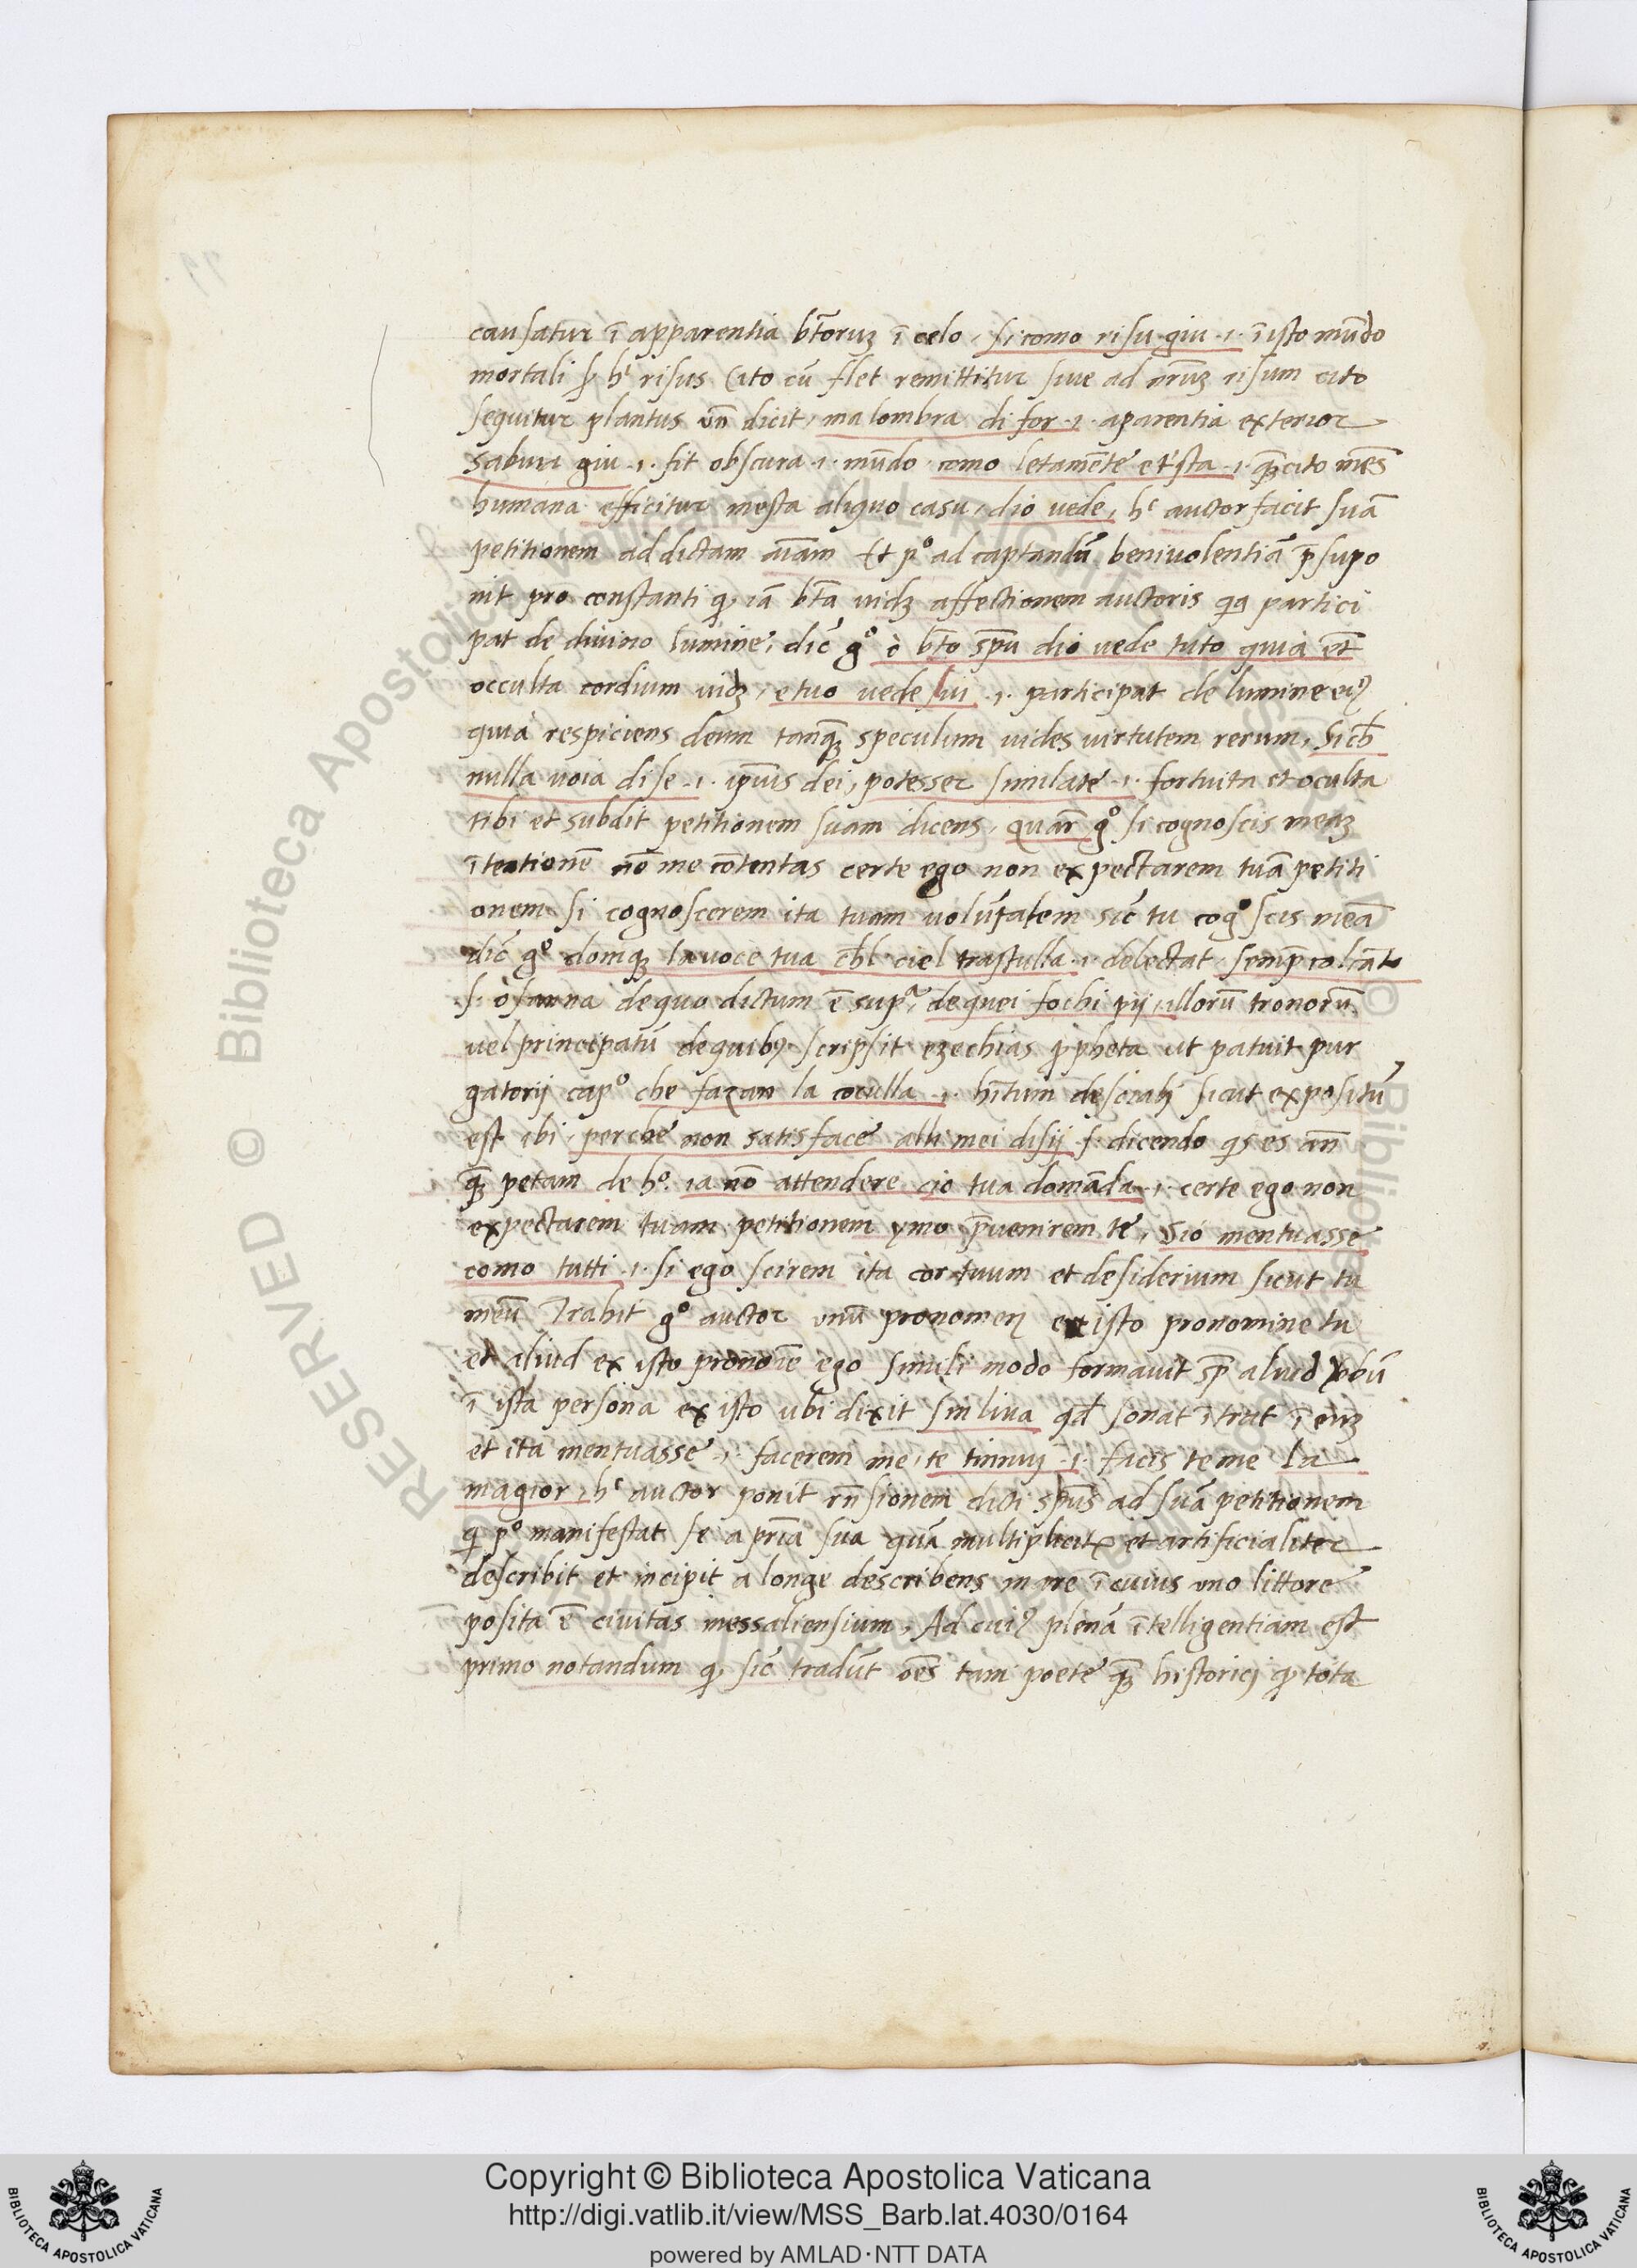 causatur ī apparentia btōruȝ ī celo, si como risu giu .i. ī isto mūdo
mortali s; hᶜ risus cito cū flet remittitur siue ad nrūȝ risum cito
sequitur plantus vn̄ dicit, ma lombra di for .i. aparentia exterior
sabuia giu .i. fit obscura .i. mūdo como letamēte et'sta .i. qȝ cito mēs
humana efficitur mesta aliquo casu, dio uede, hᶜ auctor facit suā
petitionem ad dictam aīam Et pº ad captandū beniuolentiā p̄supo
nit pro constanti qꝫ iā btā uidȝ affectionem auctoris qꝫ partici
pat de diuino lumine, dic̄ gº ò btō spū dio uede tuto quia et̄
occulta cordium uidȝ, e tuo uede lui .i. participat de lumine eiꝰ
quia respiciens deum tanqȝ speculum uides uirtutem rerum, Si ch̄
nulla uoia di se .i. ipīus dei, potesser similate .i. fortuita et oculta
tibi et subdit petitionem suam dicens, quar̄ gº si cognoscis meaȝ
īteationē nō me cōtentas certe ego non expectarem tuā petiti
onem si cognoscerem ita tuam volūtatem sic̄ tu cogº scis meā
dic̄ gº domqȝ la uoce tua ch̄l ciel trastulla .i. delectat semp̄ col cāto
.s. òsanna de quo dictum ē supᵃ, de quei fochi pij, illorū tronorū
uel principatū de quibꝰ scripsit ezechias ꝓpheta ut patuit pur
gatorij capº che fazan la coculla .i. hītum desciali sicut expositū
est ibi, perche non satisface alli mei disij .s. dicendo qs es an̄
qȝ petam de hº. ia nō attendere cio tua domāda .i. certe ego non
expectarem tuam petitionem ymo p̄uenirem te, Sio mentuasse
como tutti .i. si ego scirem ita cor tuum et desiderium sicut tu
meū Trahit gº auctor unū pronomen ex isto pronomine tu
et aliud ex isto pronoīe ego simili modo formauit sp̄ aliud ꝟbū
ī ista persona ex isto ubi dixit sinliua qd̄ sonat ītrat ī euȝ
et ita mentuasse .i. facerem me, te timuij .i. facis te me La
magior, hᶜ auctor ponit rn̄sionem dicti spūs ad suā petitionem
qꝫ pº manifestat se a prīa sua quā multiplicitꝛ et artificialiter
describit et incipit a longe describens mare ī cuius uno littore
posita ē ciuitas messaliensium, Ad cuiꝰ plenā ītelligentiam est
primo notandum qꝫ sic̄ tradūt oēs tam poete qȝ historici qꝫ tota
Copyright © Biblioteca Apostolica Vaticana
http://digi.vatlib.it/view/MSS_Barb.lat.4030/0164
powered by AMLAD·NTT DATA